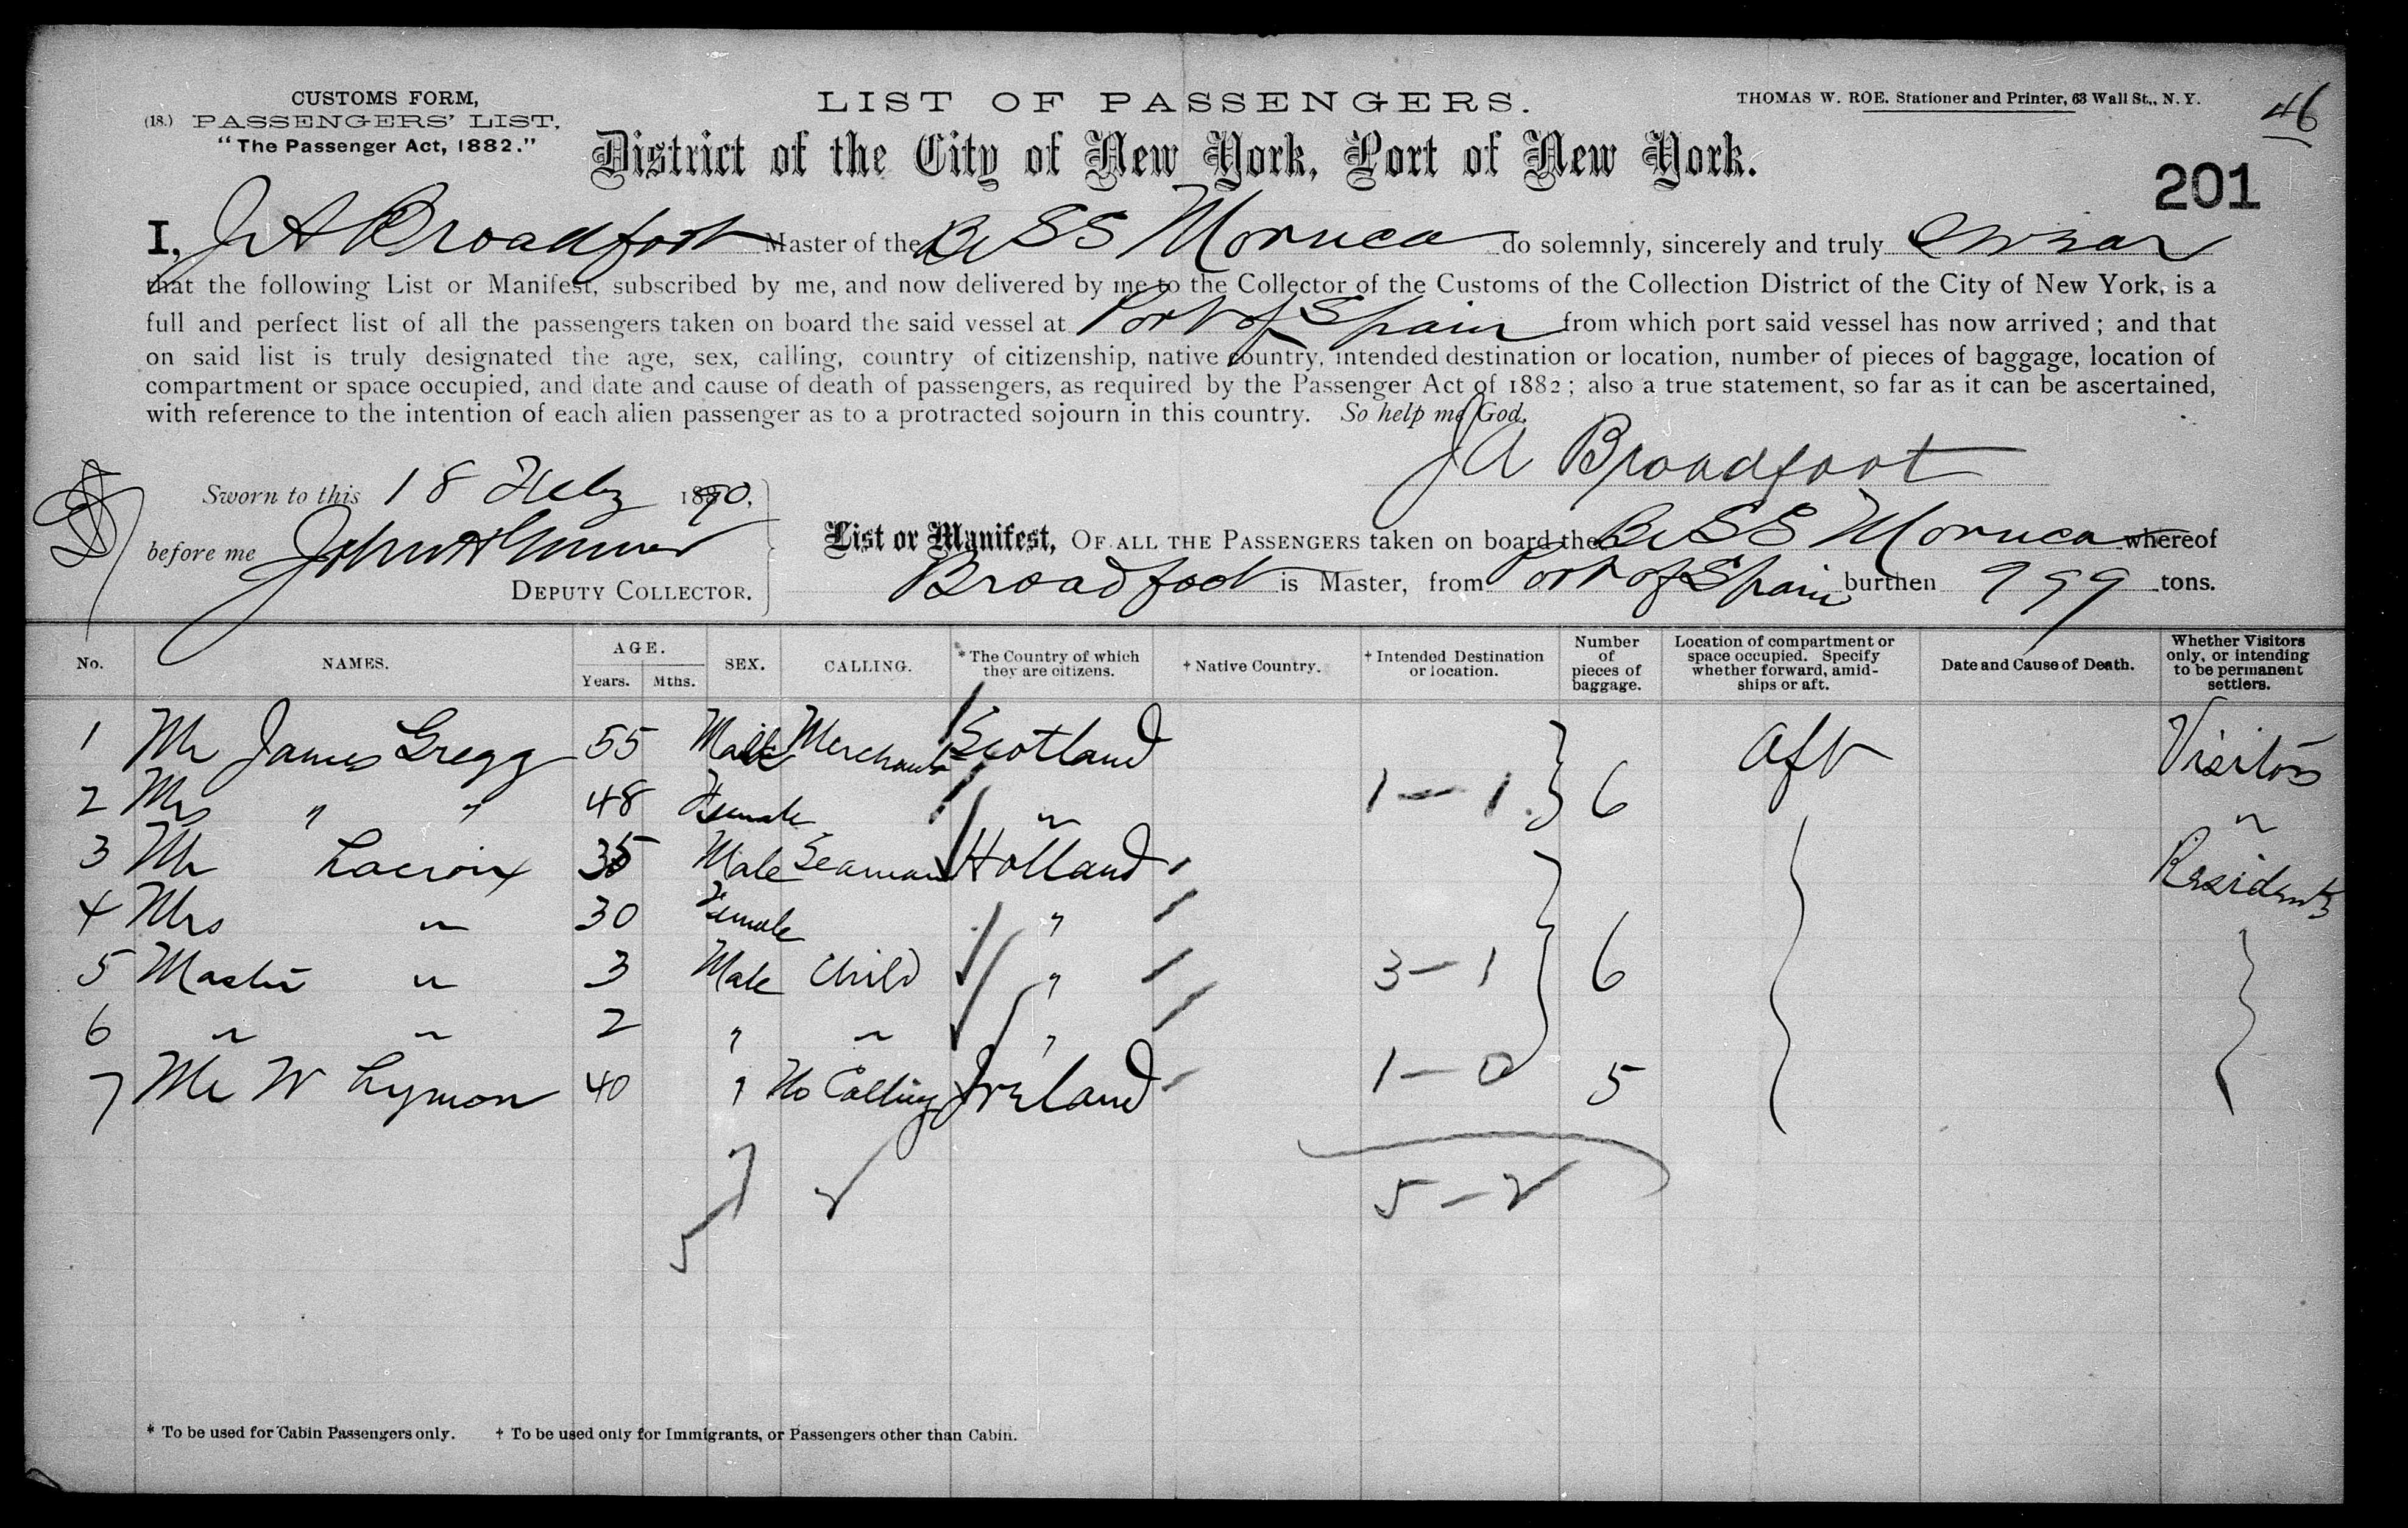 CUSTOMS FORM,
(18.) PASSENGERS' LIST,
"The Passenger Act, 1882."
LIST OF PASSENGERS.
THOMAS W. ROE. Stationer and Printer, 63 Wall St., N. Y.
46
District of the City of New York, Port of New York.
201
I, J A Broadfoot Master of the Br SS Moruca do solemnly, sincerely and truly swear
that the following List or Manifest, subscribed by me, and now delivered by me to the Collector of the Customs of the Collection District of the City of New York, is a
full and perfect list of all the passengers taken on board the said vessel at Port of Spain from which port said vessel has now arrived; and that
on said list is truly designated the age, sex, calling, country of citizenship, native country, intended destination or location, number of pieces of baggage, location of
compartment or space occupied, and date and cause of death of passengers, as required by the Passenger Act of 1882; also a true statement, so far as it can be ascertained,
with reference to the intention of each alien passenger as to a protracted sojourn in this country. So help me God.
J A Broadfoot
Sworn to this 18 Feby 1890.
before me John
DEPUTY COLLECTOR.
List or Manifest, OF ALL THE PASSENGERS taken on board the Br SS Moruca whereof
Broadfoot is Master, from Port of Spain burthen 999 tons.
No. NAMES. AGE. Years. Mths. SEX. CALLING. * The Country of which they are citizens. † Native Country. † Intended Destination or location. Number of pieces of baggage. Location of compartment or space occupied. Specify whether forward, amidships or aft. Date and Cause of Death. Whether Visitors only, or intending to be permanent settlers.
1 Mr James Gregg 55 Male Merchant Scotland Aft Visitors
2 Mrs " " 48 Female " 1 — 1 6 "
3 Mr Lacroix 35 Male Seaman Holland Residents
4 Mrs " 30 Female "
5 Master " 3 Male Child " 3 — 1 6
6 " " 2 " " "
7 Mr W Lymon 40 " No Calling Ireland 1 — 0 5
7
5 — 2
5
* To be used for Cabin Passengers only. † To be used only for Immigrants, or Passengers other than Cabin.